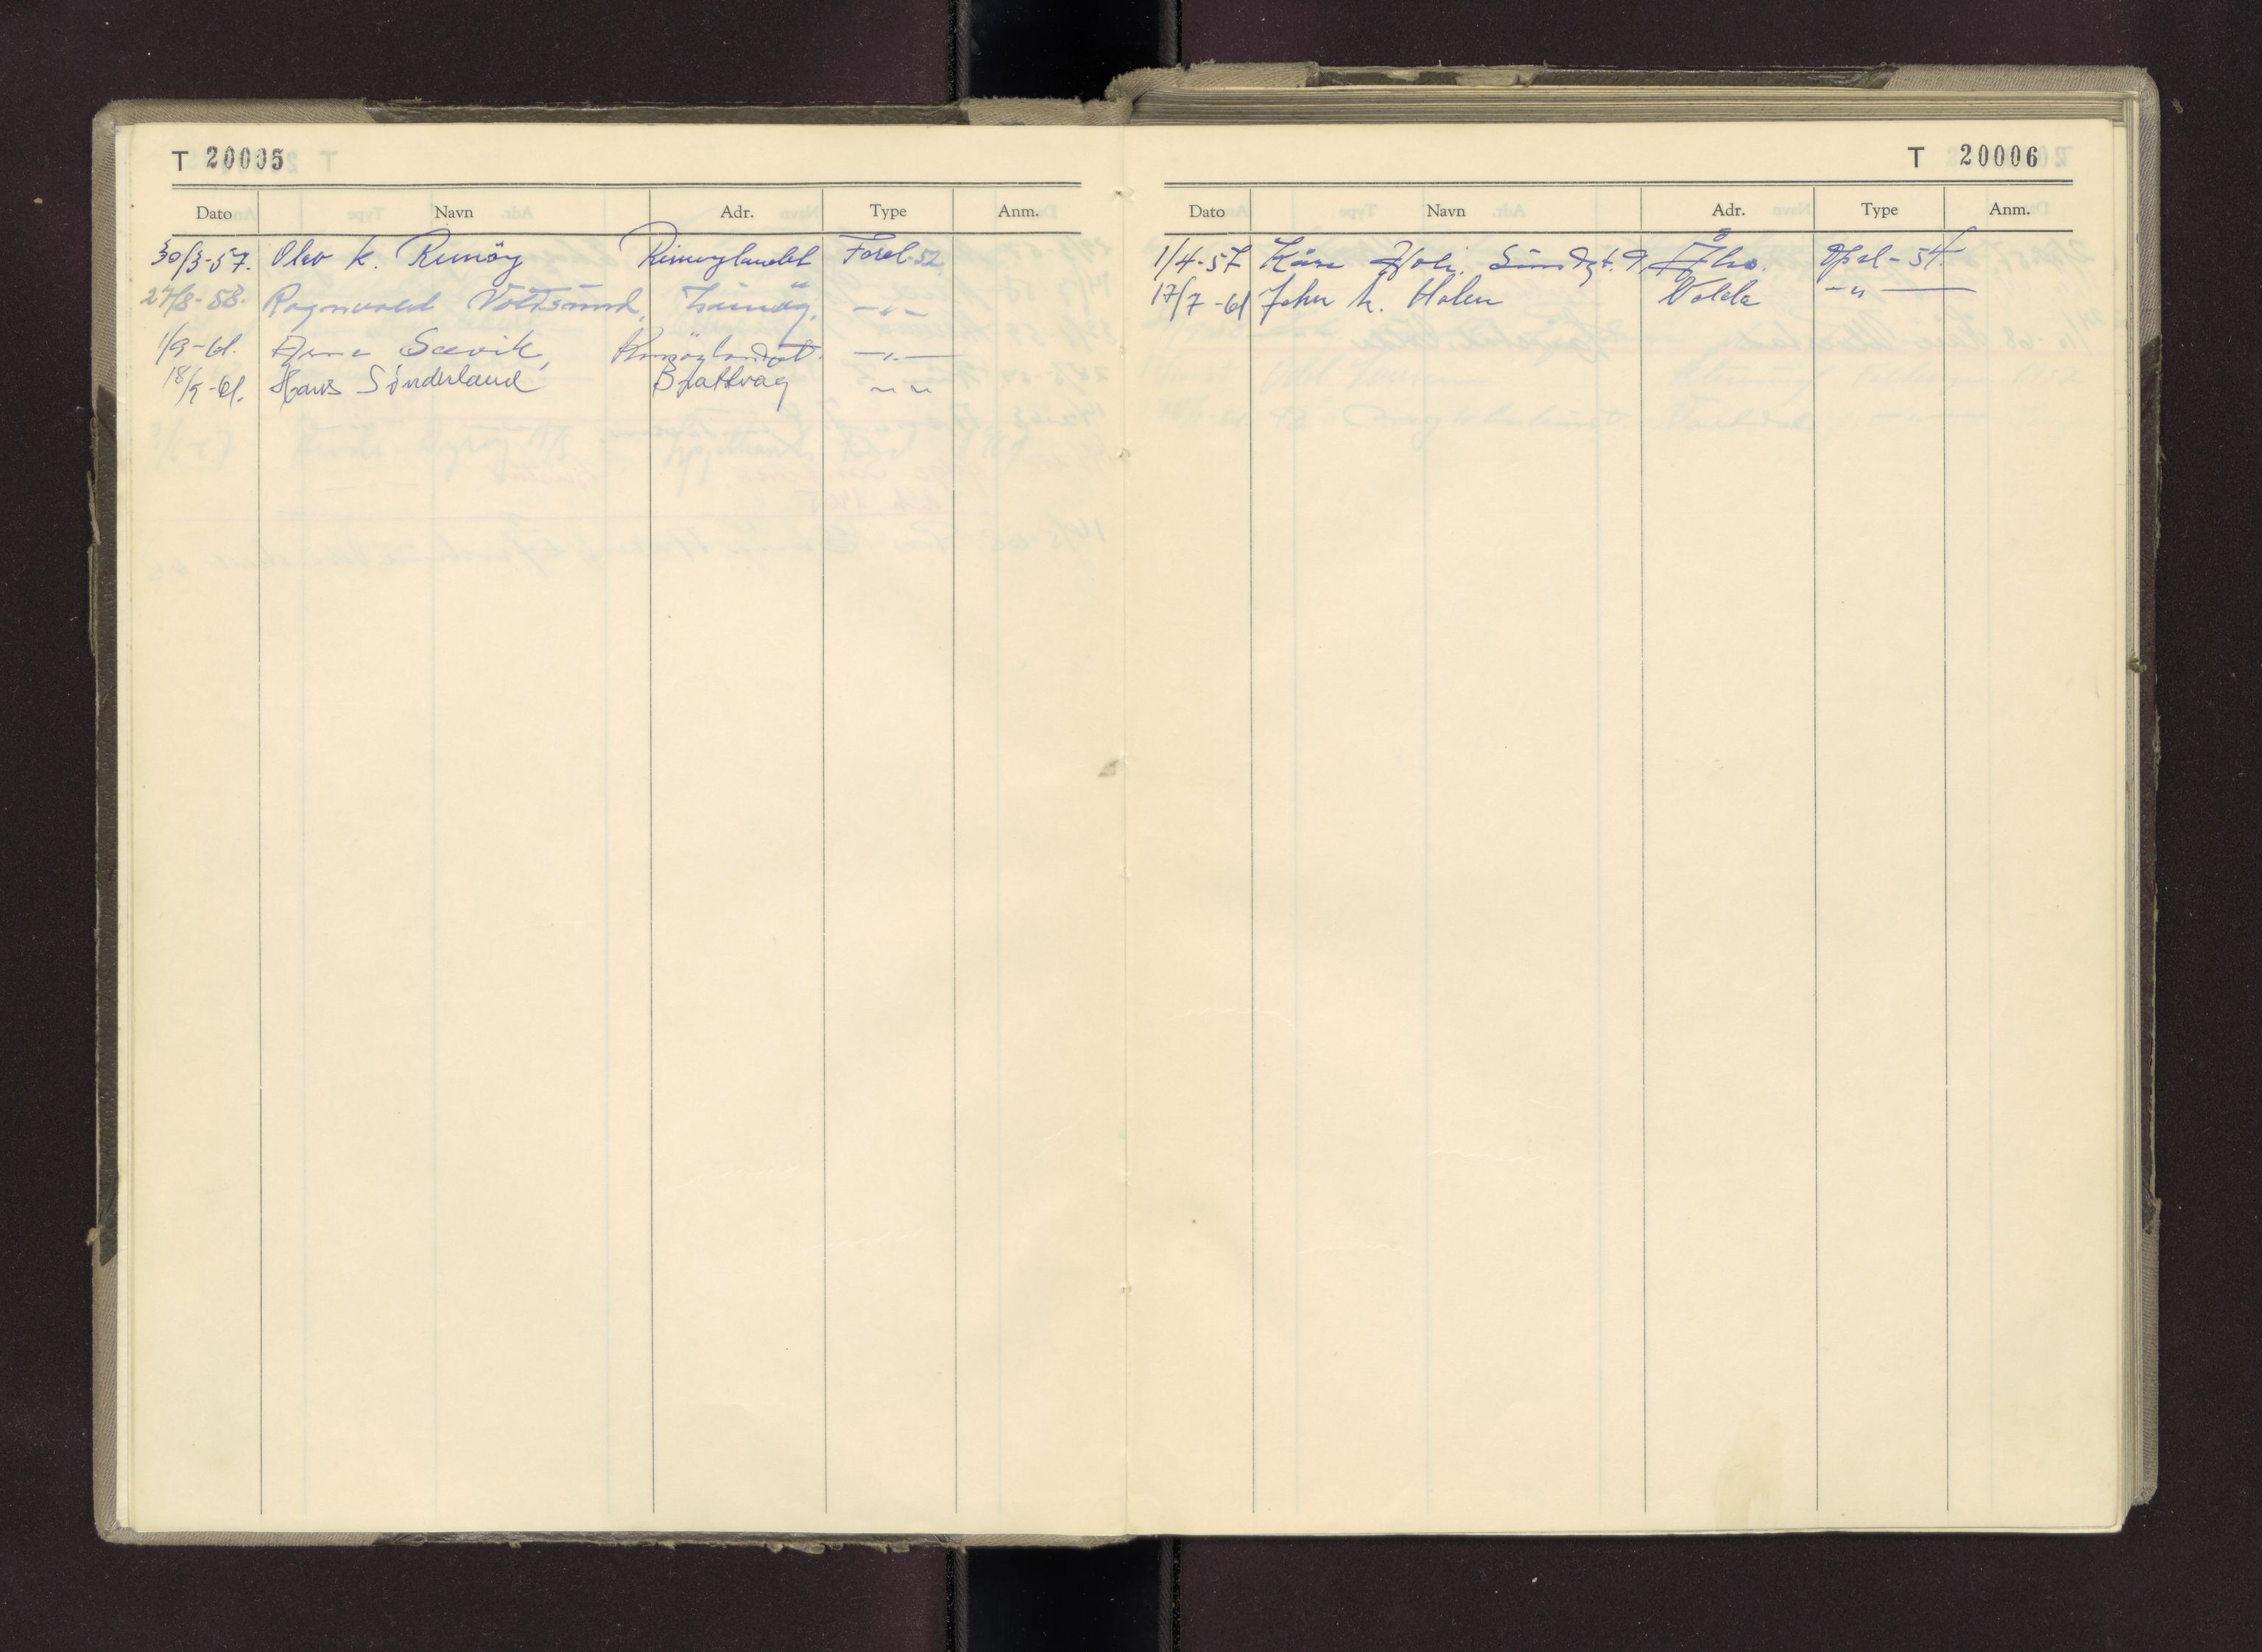 T 20005
Dato Navn Adr. Type Anm.
30/3-57. Olav K. Rimöy Rimøylandet Ford-52
27/8-58. Ragnvald Voldsund,
1/9-61. Sævik, Rimöylandet. —"—
18/9-61. Hans Sønderland Brattvåg " "
T 20006
Dato Navn Adr. Type Anm.
1/4-57 Kåre Sundgt. 9 Opel-54.
17/7-61 John H. Holen Volda —"—